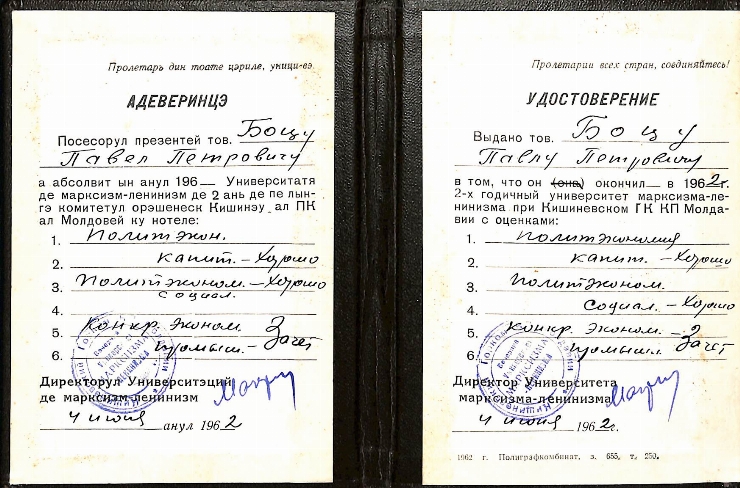 Пролетарь дин тоате цэриле, уници-вэ.
АДЕВЕРИНЦЭ
Посесорул презентей тов. Боцу
Павел Петровичу
а абсолвит ын анул 196 Университатя
де марксизм-ленинизм де 2 ань де пе лын-
гэ комитетул орэшенеск Кишинэу ал ПК
ал Молдовей ку нотеле:
1. Политэкон.
2. капит. – Хорошо
3. Политэконом. – Хорошо
социал.
4.
5. Конкр. эконом. Зачет
6. промыш. –
Директорул Университэций
де марксизм-ленинизм
4 июня анул 1962
Пролетарии всех стран, соединяйтесь!
УДОСТОВЕРЕНИЕ
Выдано тов. Боцу
Павлу Петровичу
в том, что он (она) окончил в 1962 г.
2-х годичный университет марксизма-ле-
нинизма при Кишиневском ГК КП Молда-
вии с оценками:
1. Политэкономия
2. капит. – Хорошо
3. Политэконом.
4. Социал. – Хорошо
5. Конкр. эконом. –
6. промышл. Зачет
Директор Университета
марксизма-ленинизма
4 июня 1962 г.
1962 г. Полиграфкомбинат, з. 655, т. 250.